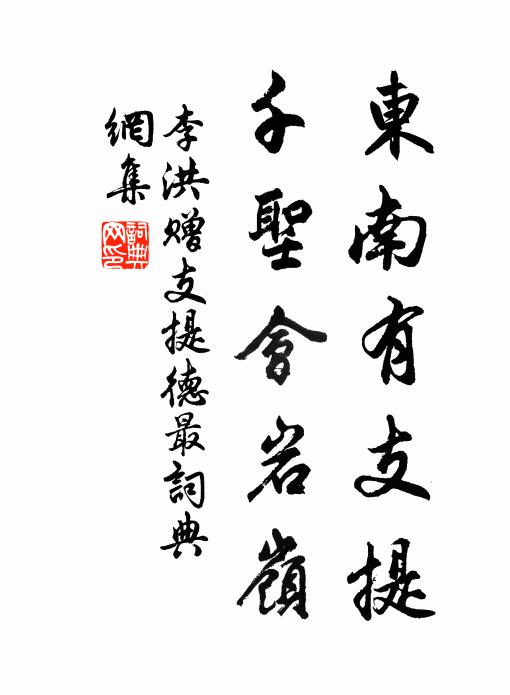 東南有支提
千聖會岩嶺
李洪赠支提德最詞典
網集
詞典
网印